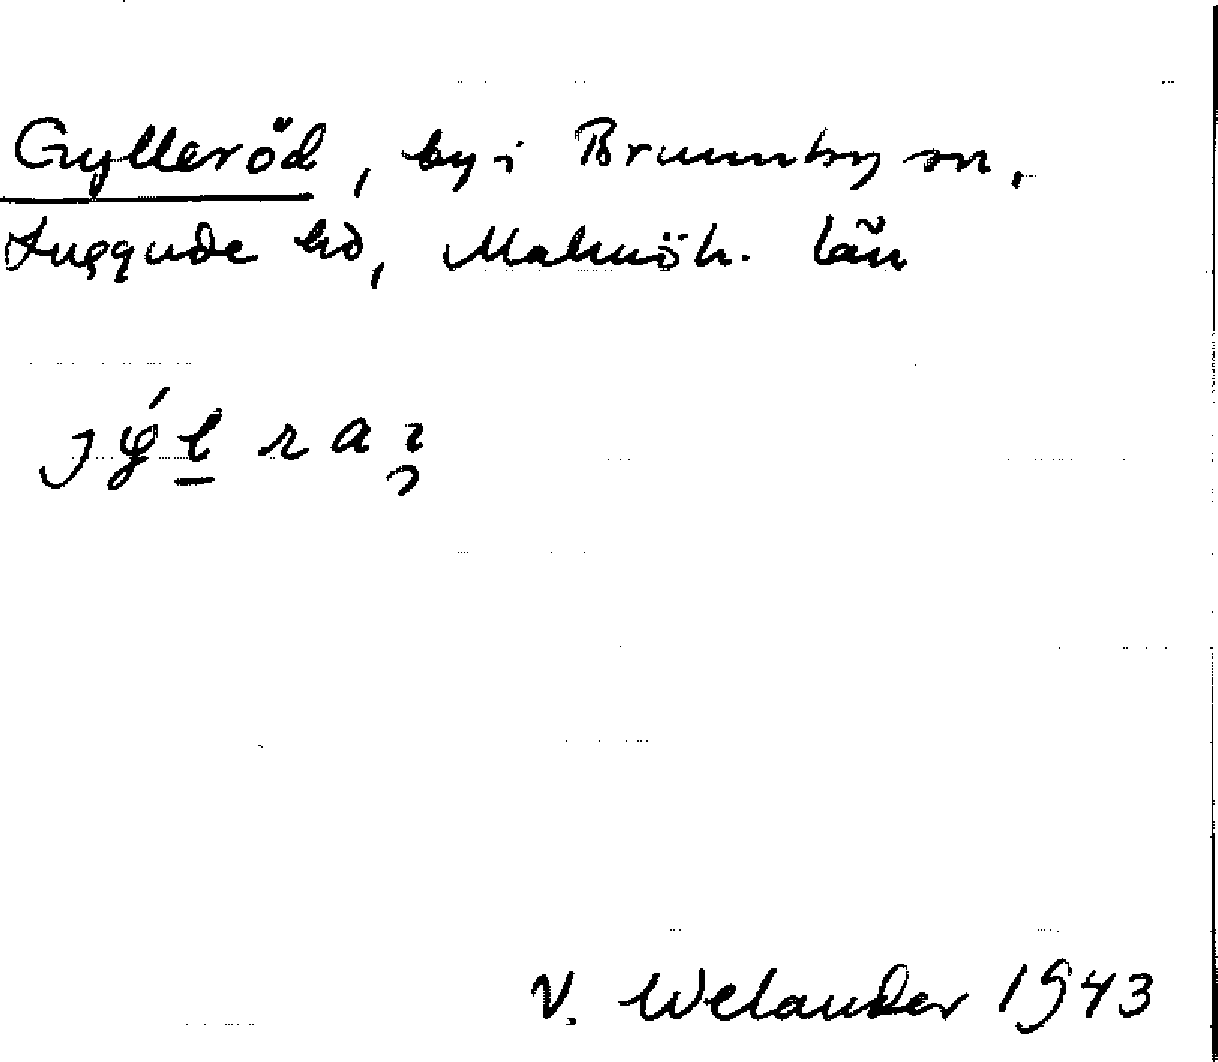 Gylleröd, by i Brunnby sn,
Luggude hd, Malmöh. län
V. Welander 1943